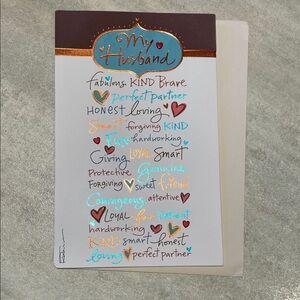 My
Husband
fabulous KIND Brave
perfect partner
HONEST loving
Smart forgiving KIND
Fun hardworking
Giving LOYAL Smart
Protective Genuine
Forgiving sweet friend
Courageous attentive
LOYAL fun
hardworking
KIND smart honest
loving perfect partner